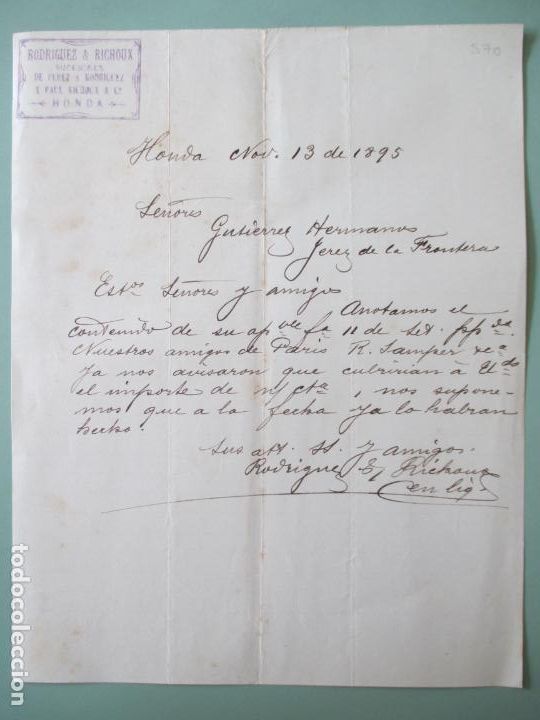 RODRIGUEZ & RICHOUX
SUCESORES
DE PEREZ & RODRIGUEZ
& PAUL & Cª
HONDA
570
Honda Nov. 13 de 1895
Señores
Gutiérrez Hermanos
Jerez de la Frontera
Estos Señores y amigos
Anotamos el
contenido de su apble fa 11 de Set. ppdo.
Nuestros amigos de Paris R. Samper &ca
ya nos avisaron que cubririan à Uds
el importe de n/ cta, nos supone-
mos que a la fecha ya lo habran
hecho.
Sus att. SS. y amigos.
Rodriguez & Richoux
en liq.
todocoleccion